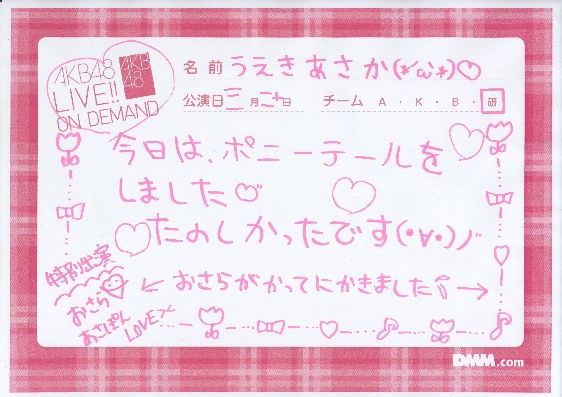 AKB48
LIVE!!
ON DEMAND
AKB
48
名前 うえきあさか(*´ω`*)♡
公演日 三月二十日 チーム A・K・B・研
今日は、ポニーテールを
しました♡
♡たのしかったです(・∀・)ノ
特別出演
おさら
あさぽん
LOVE
← おさらがかってにかきました →
DMM.com